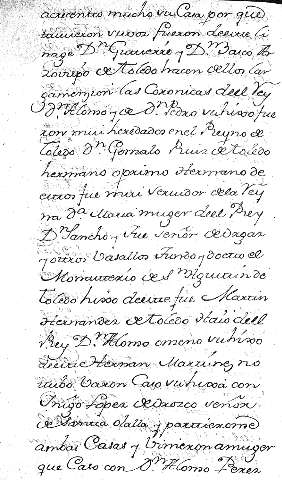 acrecento mucho su Casa por que
tuvieron suvos fueron deeste li
nage Dn. Gutierre y Dn. Vasco Ar
zovispo de Toledo hacen dellos lar
ga mencion las Coronicas del Rey
Dn. Alonso y de Dn. Pedro su hixo fue
ron mui heredados en el Reyno de
Toledo Dn. Gonzalo Ruiz de toledo
hermano o primo Hermano de
estos fue mui servidor de la Rey
na Da. Maria muger deel Rey
Dn. Sancho y fue señor de orgaz
y otros Vasallos fundo y doctó el
Monasterio de Sn. Agustin de
Toledo hixo deeste fue Martin
Hernandez de toledo Haio deel
Rey Dn. Alonso onceno su hixo
deeste Hernan Martinez no
tubo Varon Caso su hixa con
Iñigo Lopez de Orozco señor
de Santa olalla y partieronse
ambas Casas y vinieron a muger
que Caso con Dn. Alonso Perez